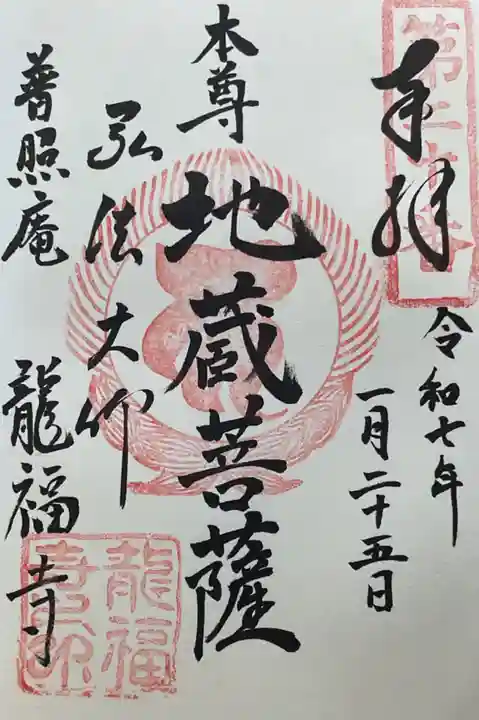 奉拝
令和七年
一月二十五日
本尊
地蔵菩薩
弘法大師
普照庵
龍福寺
龍福
寺印